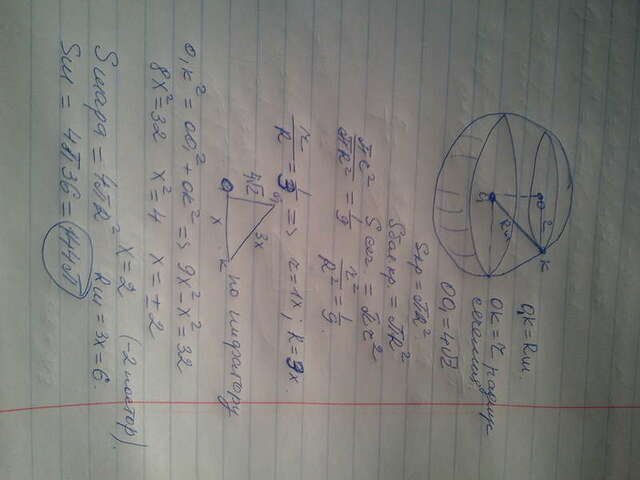 O₁K = Rш.
OK = r радиус
сечения.
OO₁ = 4√2
Sкр = πR²
Sбол кр. = πR²
Sсеч. = πr²
πr²/πR² = 1/9   r²/R² = 1/9.
r/R = 1/3 => r = 1x; R = 3x.
O O₁ K 4√2 x 3x по пифагору
O₁K² = OO₁² + OK² => 9x² - x² = 32
8x² = 32   x² = 4   x = ± 2
x = 2   (-2 постор).
Sшара = 4πR²   Rш = 3x = 6.
Sш = 4π36 = 144π